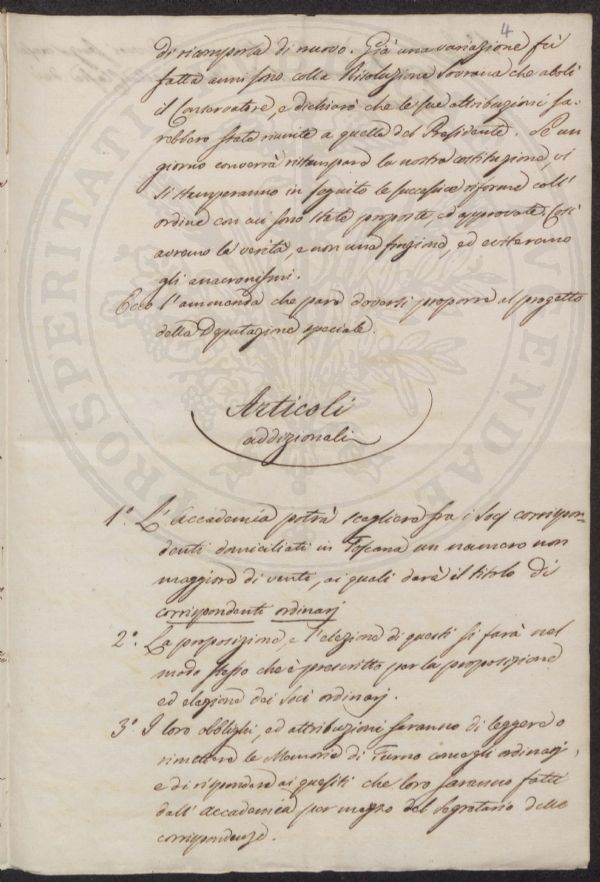 4
di ricomporla di nuovo. Già una variazione fù
fatta anni sono colla Risoluzione Sovrana che abolì
il Conservatore, e dichiarò che le sue attribuzioni sa-
rebbero state riunite a quelle del Presidente. Se un
giorno converrà ristampare la nostra costituzione, vi
si stamperanno in seguito le successive riforme coll'
ordine con cui sono state proposte ed approvate. Così
avremo la verità, e non una finzione, ed eviteremo
gli anacronismi.
Ecco l'ammenda che pare doversi proporre al progetto
della Deputazione speciale.
Articoli
addizionali
1º. L'Accademia potrà scegliere fra i Socj corrispon-
denti domiciliati in Toscana un numero non
maggiore di venti, ai quali darà il titolo di
corrispondenti ordinarj
2º. La proposizione, e l'elezione di questi si farà nel
modo stesso che è prescritto per la proposizione
ed elezione dei Soci ordinarj.
3º I loro obblighi, ed attribuzioni saranno di leggere o
rimettere le Memorie di Turno come gli ordinarj,
e di rispondere ai quesiti che loro saranno fatti
dall'Accademia per mezzo del Segretario delle
corrispondenze.
PROSPERITATI
ENDAE